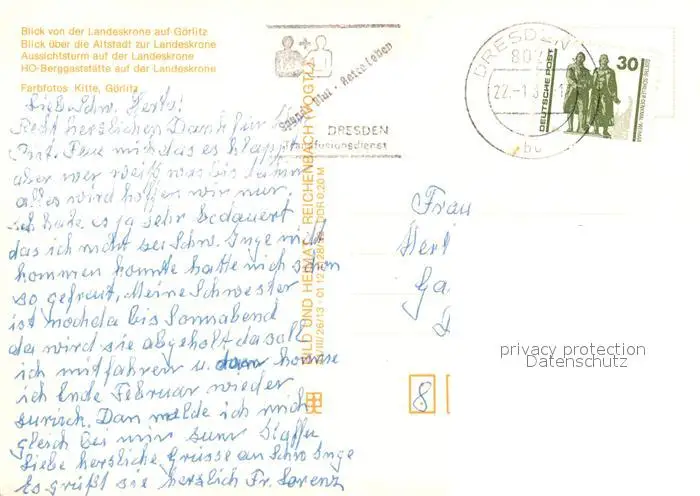 Blick von der Landeskrone auf Görlitz
Blick über die Altstadt zur Landeskrone
Aussichtsturm auf der Landeskrone
HO-Berggaststätte auf der Landeskrone
Farbfotos Kitte, Görlitz
Liebe Schw. Herta!
Recht herzlichen Dank für
Freue mich das es klappt
aber wer weiß was bis dahin
alles wird hoffen wir nur.
ich habe es ja sehr bedauert
das ich nicht bei Schw. Inge mit
kommen konnte hatte mich schon
so gefreut, Meine Schwester
ist noch da bis Sonnabend
da wird sie abgeholt da soll
ich mitfahren u. dann komme
ich Ende Februar wieder
zurück. Dan melde ich mich
gleich bei
Liebe herzliche Grüsse an Schw Inge
Es grüßt sie herzlich Fr. Lorenz
Spende Blut · Rette Leben
DRESDEN
fusionsdienst
BILD UND HEIMAT REICHENBACH (VOGTL)
DRESDEN
802
22.-1
bu
DEUTSCHE POST
30
Frau
Ga
8
privacy protection
Datenschutz